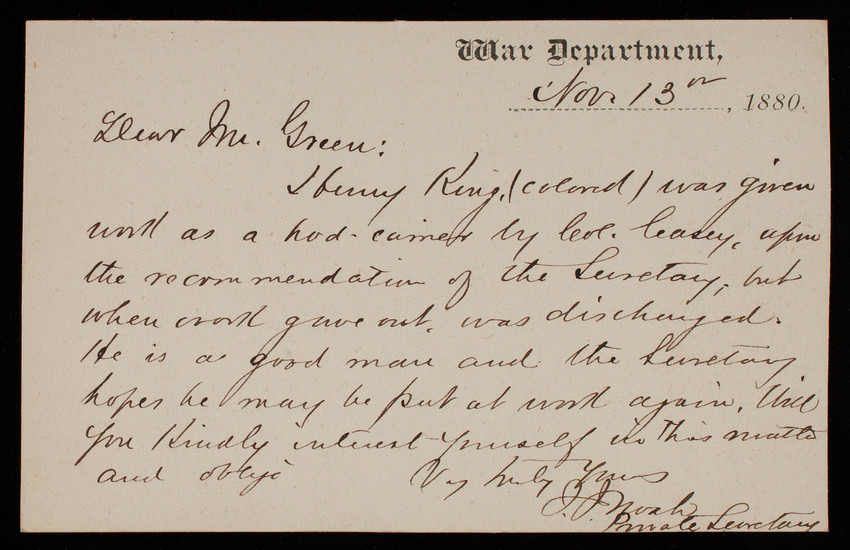 War Department,
Nov. 13th, 1880.
Dear Mr. Green:
Henry King, (colored) was given
work as a hod-carrier by Col. Casey, upon
the recommendation of the Secretary, but
when work gave out, was discharged.
He is a good man and the Secretary
hopes he may be put at work again. Will
you kindly interest yourself in this matter
and oblige
Very truly Yours
J. J. Noah
Private Secretary